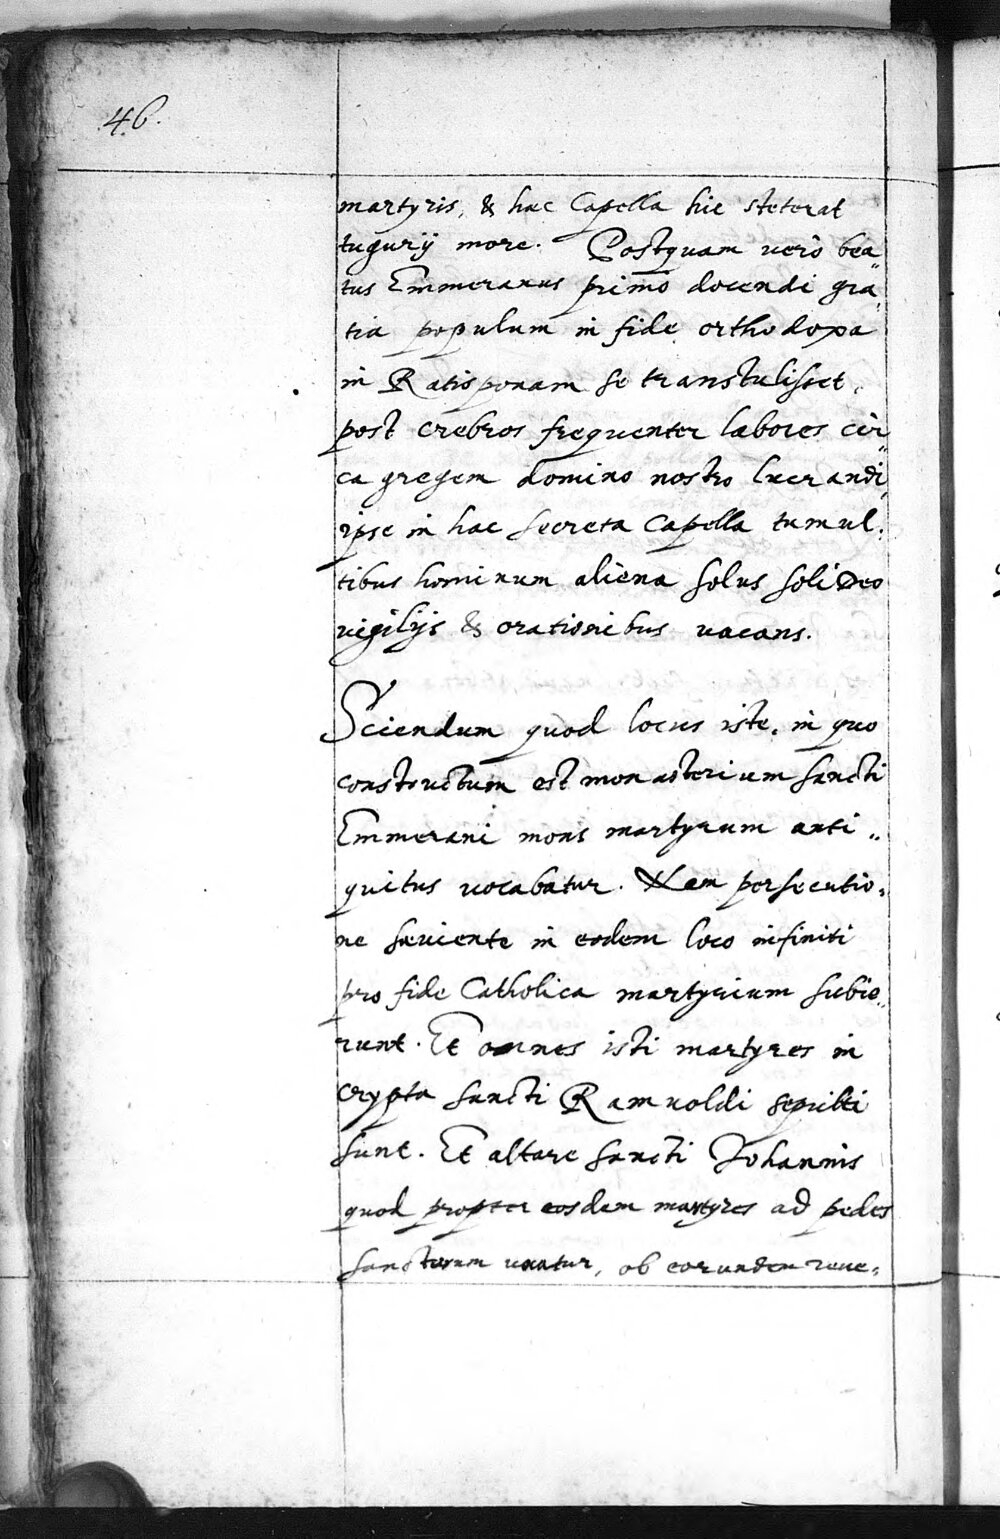 46.
martyris, & hac Capella hic steterat
tugurij more. Postquam verò bea„
tus Emmeranus primo docendi gra„
tia populum in fide orthodoxa
in Ratisponam se transtulisset,
post crebros frequenter labores cir„
ca gregem domino nostro lucrandi,
ipse in hac secreta Capella tumul„
tibus hominum aliena solus soli Deo
vigilijs & orationibus vacans.
Sciendum quod locus iste, in quo
constructum est monasterium sancti
Emmerani mons martyrum anti„
quitus vocabatur. Nam persecutio„
ne saeviente in eodem loco infiniti
pro fide Catholica martyrium subie„
runt. Et omnes isti martyres in
crypta sancti Ramvoldi sepulti
sunt. Et altare sancti Johannis
quod propter eosdem martyres ad pedes
sanctorum vocatur, ob eorundem reve„